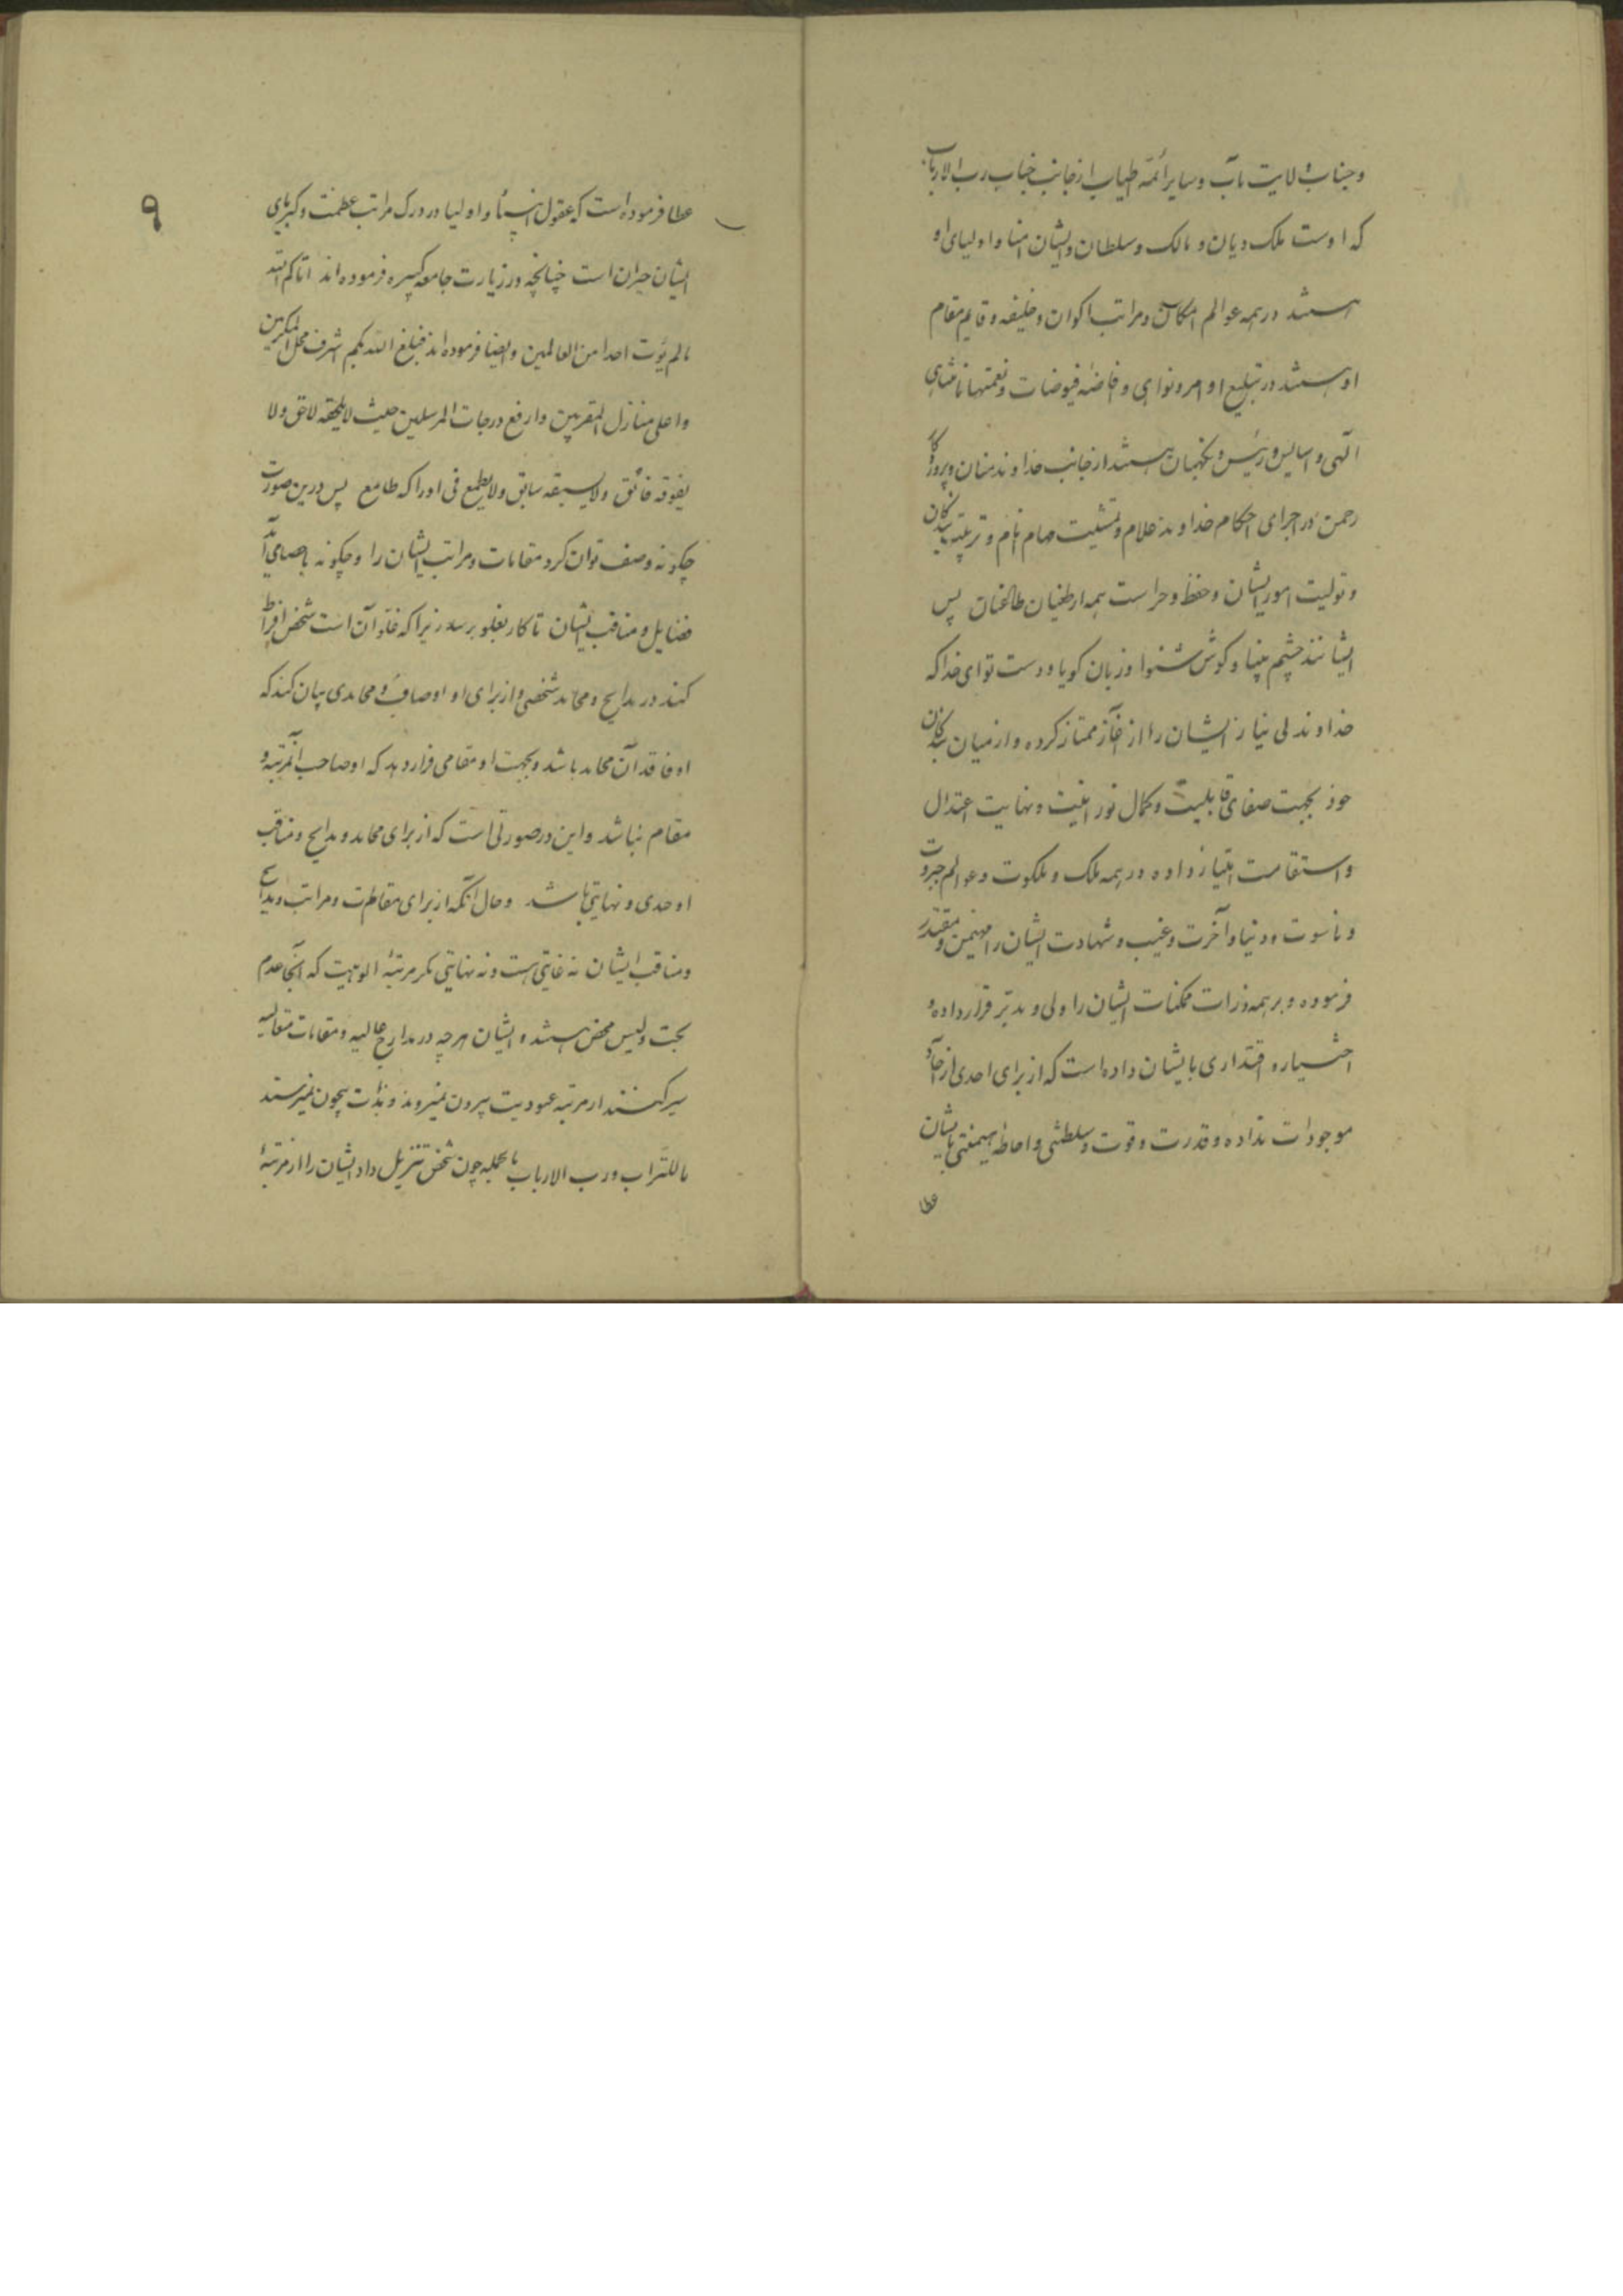 وجناب ولایت مآب و سایر ائمه اطیاب از جانب جناب رب الارباب
که اوست ملک دیان و مالک و سلطان و ایشان امنا و اولیای او
هستند در همه عوالم امکان و مراتب اکوان و خلیفه و قایم مقام
او هستند در تبلیغ اوامر و نواهی و افاضه فیوضات و نعمتها نامتناهی
الهی و اسایس و رئیس و نگهبان هستند از جانب خداوند منان و پروردگار
رحمن در اجرای احکام خداوند علام و تمشیت مهام انام و تربیت بندگان
و تولیت امور ایشان و حفظ و حراست همه از طغیان طاغیان پس
ایشانند چشم بینا و گوش شنوا و زبان گویا و دست توانای خدا که
خداوند بی نیاز ایشان را از آغاز ممتاز کرده و از میان بندگان
خود بجهت صفای قابلیت و کمال نورانیت و نهایت اعتدال
و استقامت امتیاز داده در همه ملک و ملکوت و عوالم جبروت
و ناسوت و دنیا و آخرت و غیب و شهادت ایشان را مهیمن و مقتدر
فرموده و بر همه ذرات ممکنات ایشان را ولی و مدبر قرار داده و
اختیار و اقتداری بایشان داده است که از برای احدی از آحاد
موجودات نداده و قدرت و قوت و سلطنتی و احاطه و هیمنتی بایشان
عطا
۹
عطا فرموده است که عقول انبیاء و اولیا در درک مراتب عظمت و کبریای
ایشان حیران است چنانچه در زیارت جامعه کبیره فرموده اند اتاکم الله
مالم یؤت احدا من العالمین و ایضا فرموده اند فبلغ الله بکم اشرف محل المکرمین
و اعلی منازل المقربین و ارفع درجات المرسلین حیث لا یلحقه لاحق ولا
یفوقه فائق ولا یسبقه سابق ولا یطمع فی ادراکه طامع پس درین صورت
چگونه وصف توان کرد مقامات و مراتب ایشان را و چگونه باحصا می آید
فضایل و مناقب ایشان تا کار بغلو برسد زیرا که غلو آن است شخص افراط
کند در مدایح و محامد شخصی و از برای او اوصاف و محامدی بیان کند که
او فاقد آن محامد باشد و بجهت او مقامی قرار دهد که او صاحب آنمرتبه و
مقام نباشد و این در صورتی است که از برای محامد و مدایح و مناقب
او حدی و نهایتی باشد و حال آنکه از برای مقامات و مراتب و مدایح
و مناقب ایشان نه غایتی هست و نه نهایتی مگر مرتبهٔ الوهیت که آنجا عدم
بحت و لیس محض هستند و ایشان هر چه در مدارج عالیه و مقامات متعالیه
سیر کنند از مرتبه عبودیت بیرون نمیروند و بذات بیچون نمیرسند
ما للتراب و رب الارباب بالجمله چون شخص تنزیل داد ایشان را از مرتبهٔ